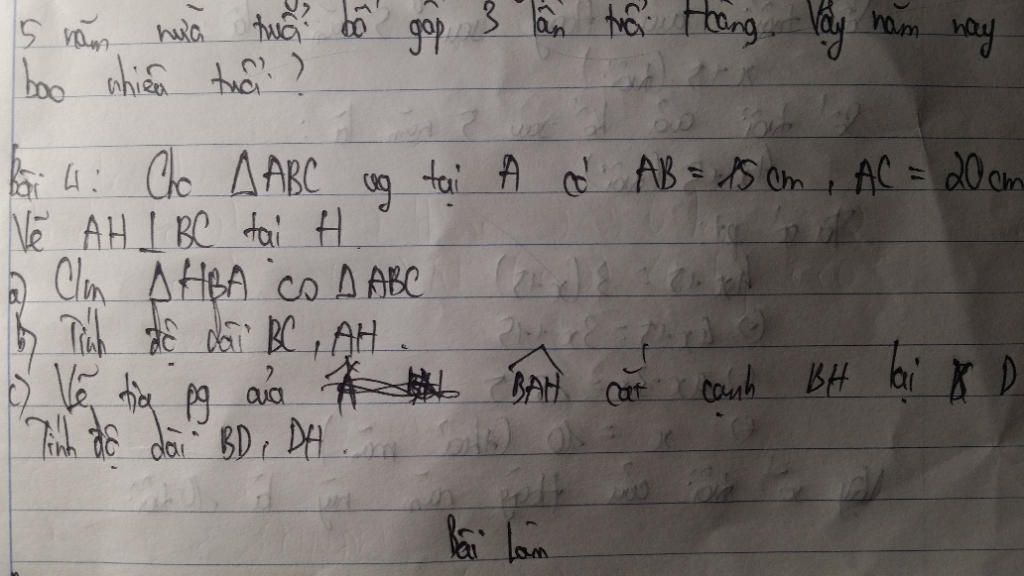 5 năm nữa tuổi bố gấp 3 lần tuổi Hằng. Vậy năm nay
bao nhiêu tuổi?
Bài 4: Cho ΔABC vg tại A có AB = 15 cm, AC = 20 cm
Vẽ AH ⊥ BC tại H
a) C/m ΔHBA ∽ ΔABC
b) Tính độ dài BC, AH.
c) Vẽ tia pg của BAH cắt cạnh BH tại D
Tính độ dài BD, DH.
Bài làm